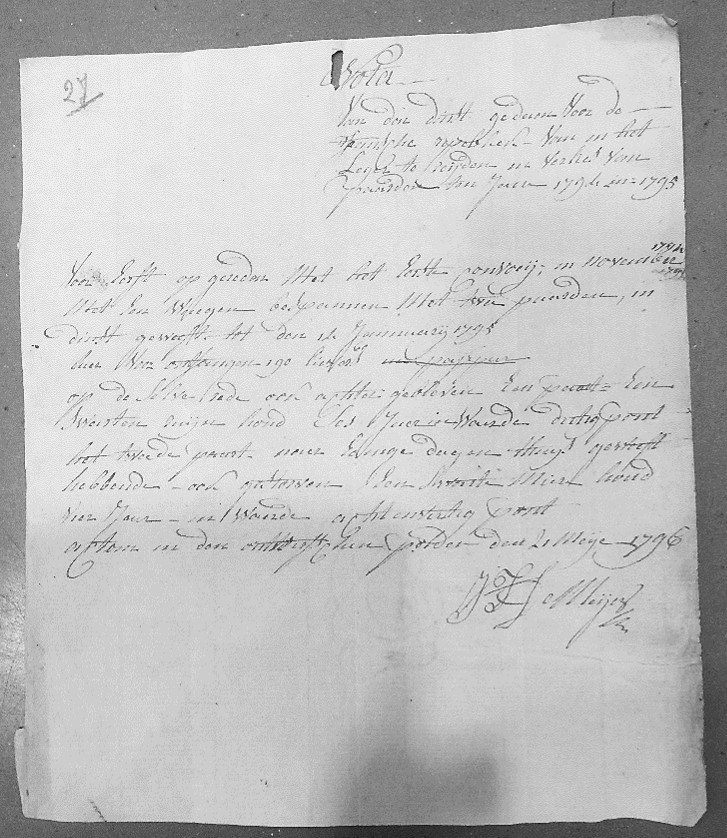 27
Nota
Van den dinst gedaen Voor de
fransche republick - Van in het
Leger te heyden en verlies Van
paerden ten Jaere 1794 en 1795
Voor Eerst op gereden Met het Eerste convoeij, in november 1794
Met Een Waegen bespannen Met twee paarden, in
dinst geweest tot den 12 Jannuarij 1795
hier Voor ontfangen 190 livers en pappier
op de selve rede ook achter gebleven Een paert - Een
swarten ruijn houd ses Jaer in Waerde dertig pont
het twede paert naer Eenige dagen thuys geweest
hebbende - ook gestorven Een swarte Mier houd
vier Jaer - in Waerde achtenvertig pont
actom in den polder den 21 Meije 1796
J F De Meijer